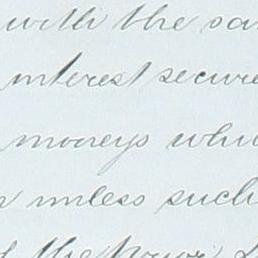 with the sa
interest secure
moneys whi
unless such
the